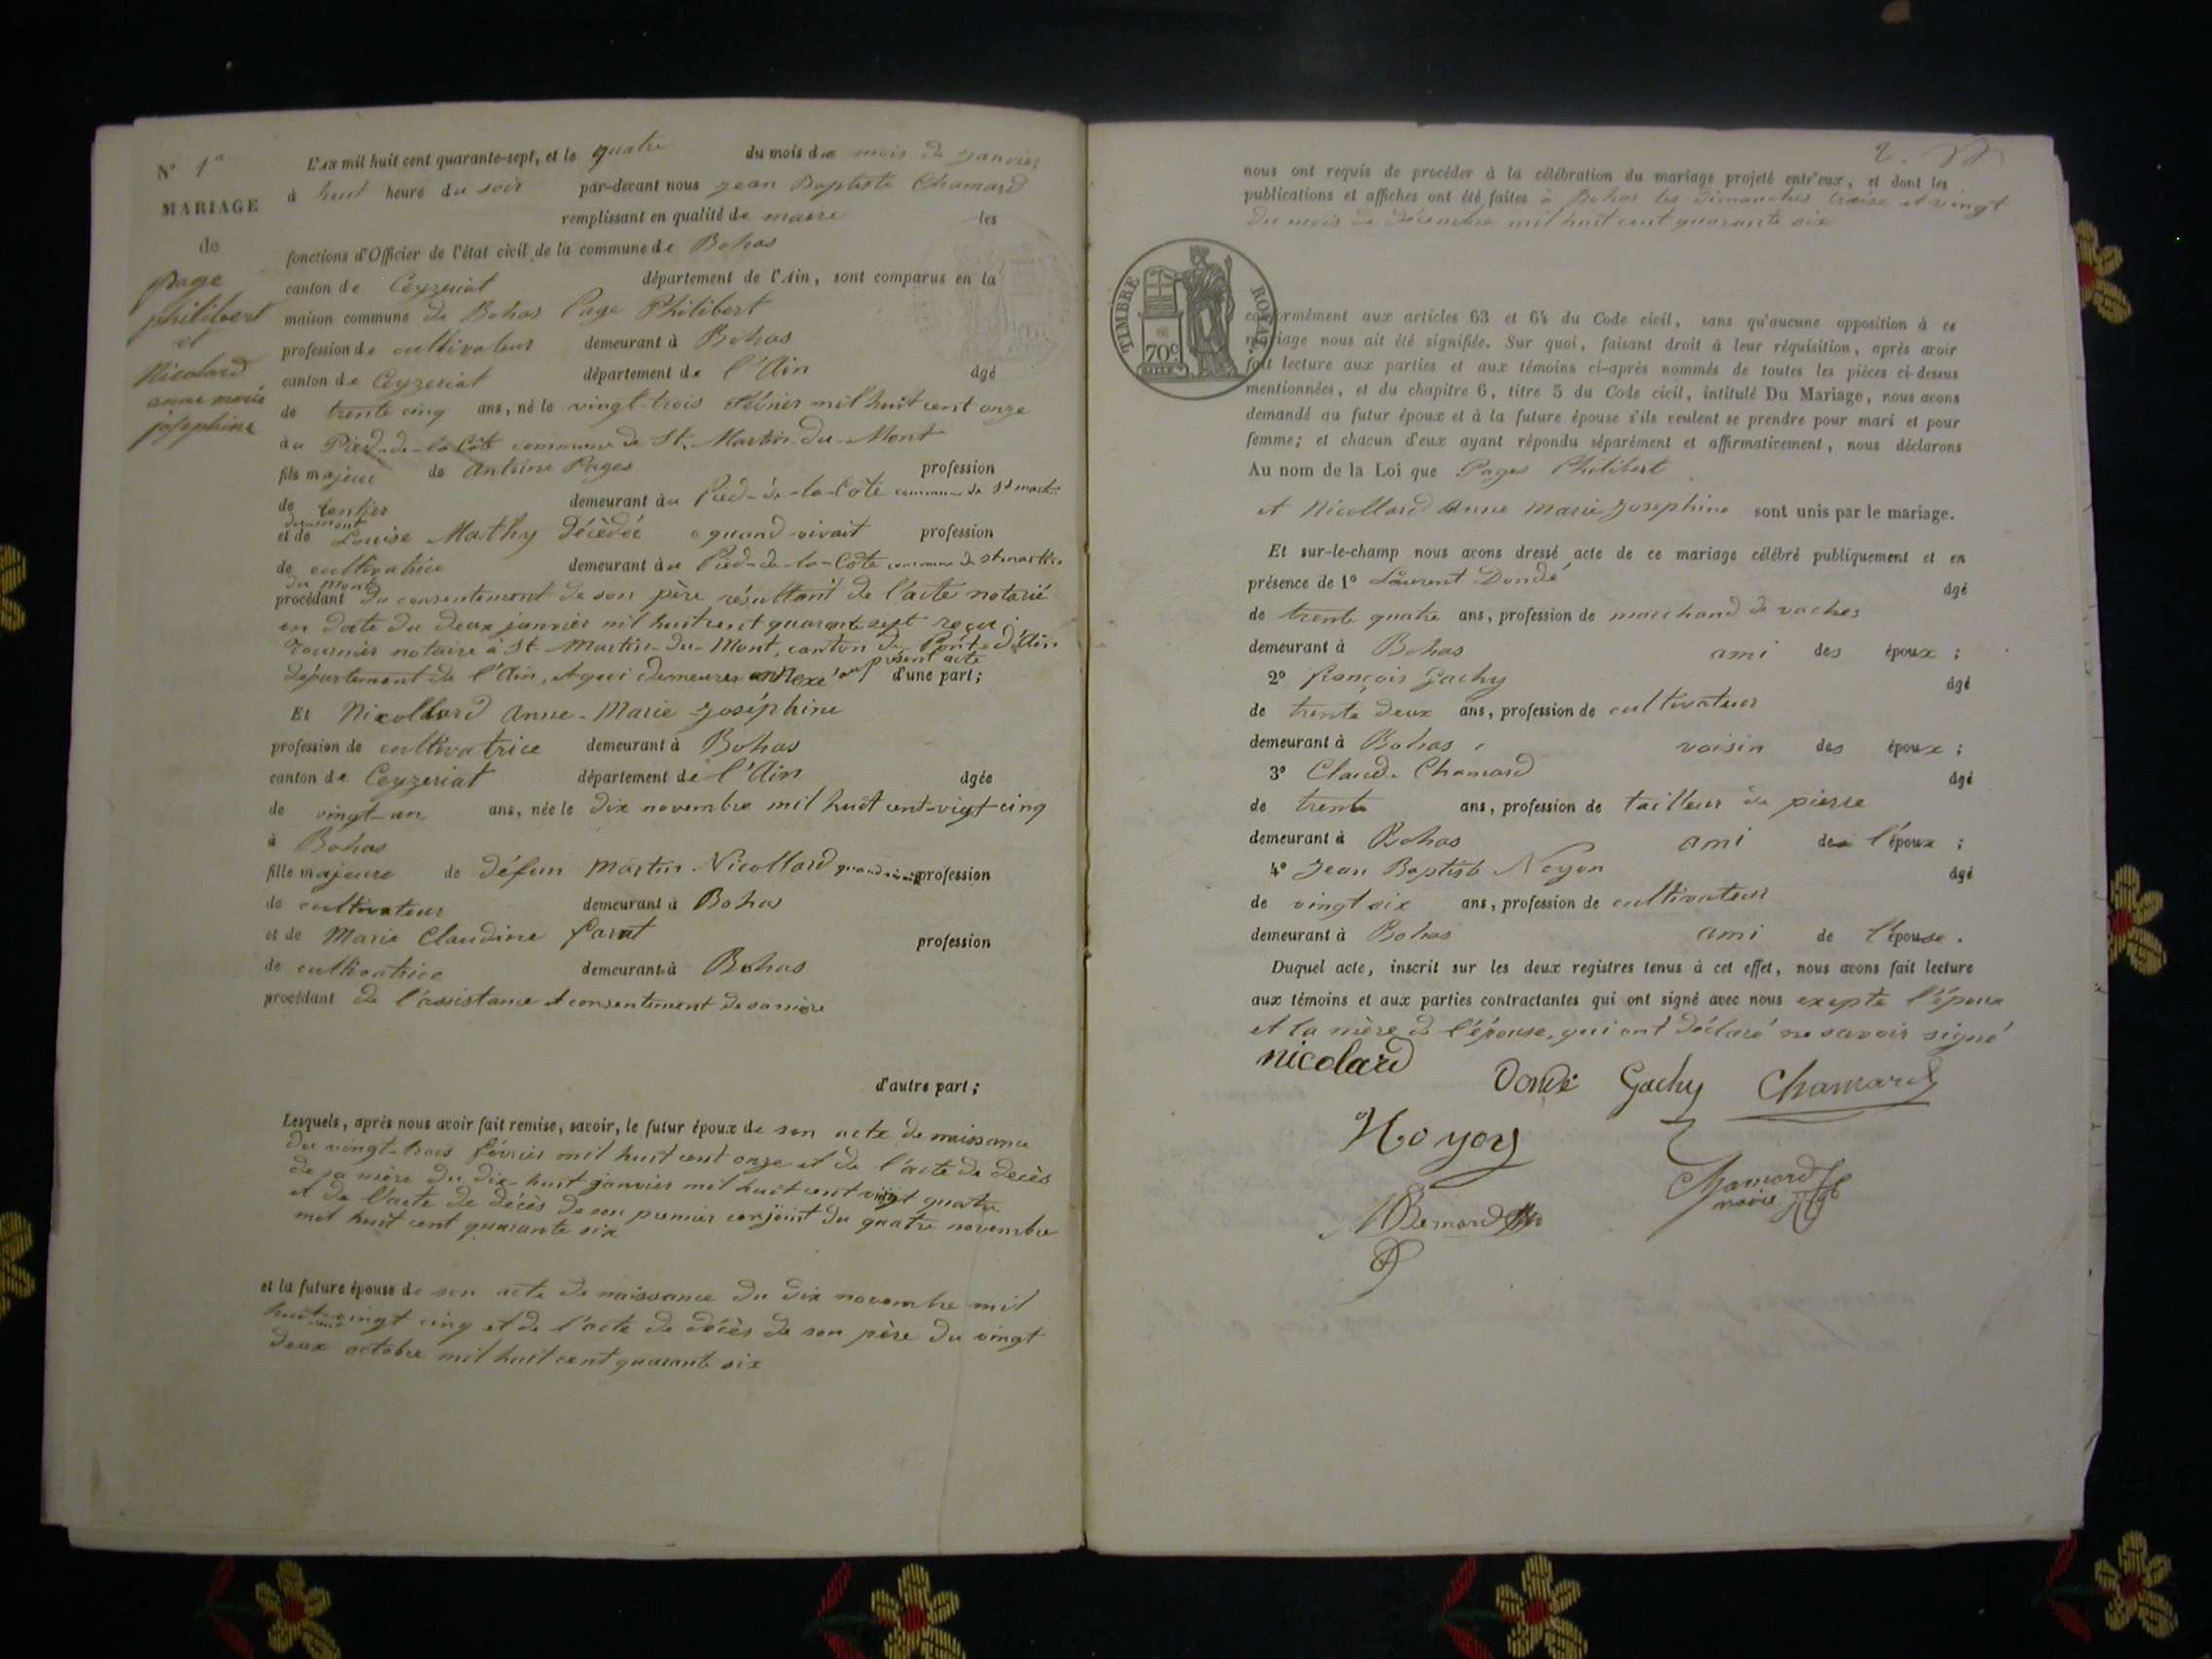 N° 1er
MARIAGE
de
Page
philibert
et
Nicolard
anne marie
josephine
L'AN mil huit cent quarante-sept, et le quatre du mois de mois de Janvier
à huit heure du soir par-devant nous Jean Baptiste Chamard
remplissant en qualité de maire les
fonctions d'Officier de l'état civil de la commune de Bohas
canton de Ceyzeriat département de l'Ain, sont comparus en la
maison commune de Bohas Page Philibert
profession de cultivateur demeurant à Bohas
canton de Ceyzeriat département de l'Ain âgé
de trente cinq ans, né le vingt-trois février mil huit cent onze
au Pied-de-la Côte commune de St. Martin-du-Mont
fils majeur de Antoine Pages profession
de rentier demeurant au Pied-de-la-Côte commune de St martin
du-mont
et de Louise Mathy décédée quand vivait profession
de cultivatrice demeurant au Pied-de-la-Côte commune de St martin
du Mont
procédant du consentement de son père résultant de l'acte notarié
en date du deux janvier mil huit cent quarante sept reçu
Tournier notaire à St Martin-du-Mont, canton de Pont-d'Ain
département de l'Ain, et qui demeurer annexé au présent acte d'une part;
Et Nicollard Anne-Marie Joséphine
profession de cultivatrice demeurant à Bohas
canton de Ceyzeriat département de l'Ain âgée
de vingt-un ans, née le dix novembre mil huit cent-vigt-cinq
à Bohas
fille majeure de défun Martin Nicollard quand vivait profession
de cultivateur demeurant à Bohas
et de Marie Claudine profession
de cultivatrice demeurant à Bohas
procédant de l'assistance et consentement de sa mère
d'autre part;
Lesquels, après nous avoir fait remise, savoir, le futur époux de son acte de naissance
du vingt-trois février mil huit cent onze et de l'acte de decès
de sa mère du dix-huit janvier mil huit cent vingt quatre
et de l'acte de décès de son premier conjoint du quatre novembre
mil huit cent quarante six
et la future épouse de son acte de naissance du dix novembre mil
huit cent vingt cinq et de l'acte de décès de son père du vingt
deux octobre mil huit cent quarante six
2.
nous ont requis de procéder à la célébration du mariage projeté entr'eux, et dont les
publications et affiches ont été faites à Bohas les dimanches treize et vingt
du mois de décembre mil huit cent quarante six
TIMBRE ROYAL
70c
conformément aux articles 63 et 64 du Code civil, sans qu'aucune opposition à ce
mariage nous ait été signifiée. Sur quoi, faisant droit à leur réquisition, après avoir
fait lecture aux parties et aux témoins ci-après nommés de toutes les pièces ci-dessus
mentionnées, et du chapitre 6, titre 5 du Code civil, intitulé Du Mariage, nous avons
demandé au futur époux et à la future épouse s'ils veulent se prendre pour mari et pour
femme; et chacun d'eux ayant répondu séparément et affirmativement, nous déclarons
Au nom de la Loi que Pages Philibert
et Nicollard Anne Marie Josephine sont unis par le mariage.
Et sur-le-champ nous avons dressé acte de ce mariage célébré publiquement et en
présence de 1° Laurent Dondé âgé
de trente quatre ans, profession de marchand de vaches
demeurant à Bohas ami des époux ;
2° françois Gachy âgé
de trente deux ans, profession de cultivateur
demeurant à Bohas voisin des époux ;
3° Claude Chamard âgé
de trente ans, profession de tailleur de pierre
demeurant à Bohas ami de l'époux ;
4° Jean Baptiste Noyon âgé
de vingt six ans, profession de cultivateur
demeurant à Bohas ami de l'épouse.
Duquel acte, inscrit sur les deux registres tenus à cet effet, nous avons fait lecture
aux témoins et aux parties contractantes qui ont signé avec nous exepté l'époux
et la mère de l'épouse, qui ont déclaré ne savoir signé
nicolard
Dondé Gachy Chamard
Noyon
Chamard
maire
Bernard